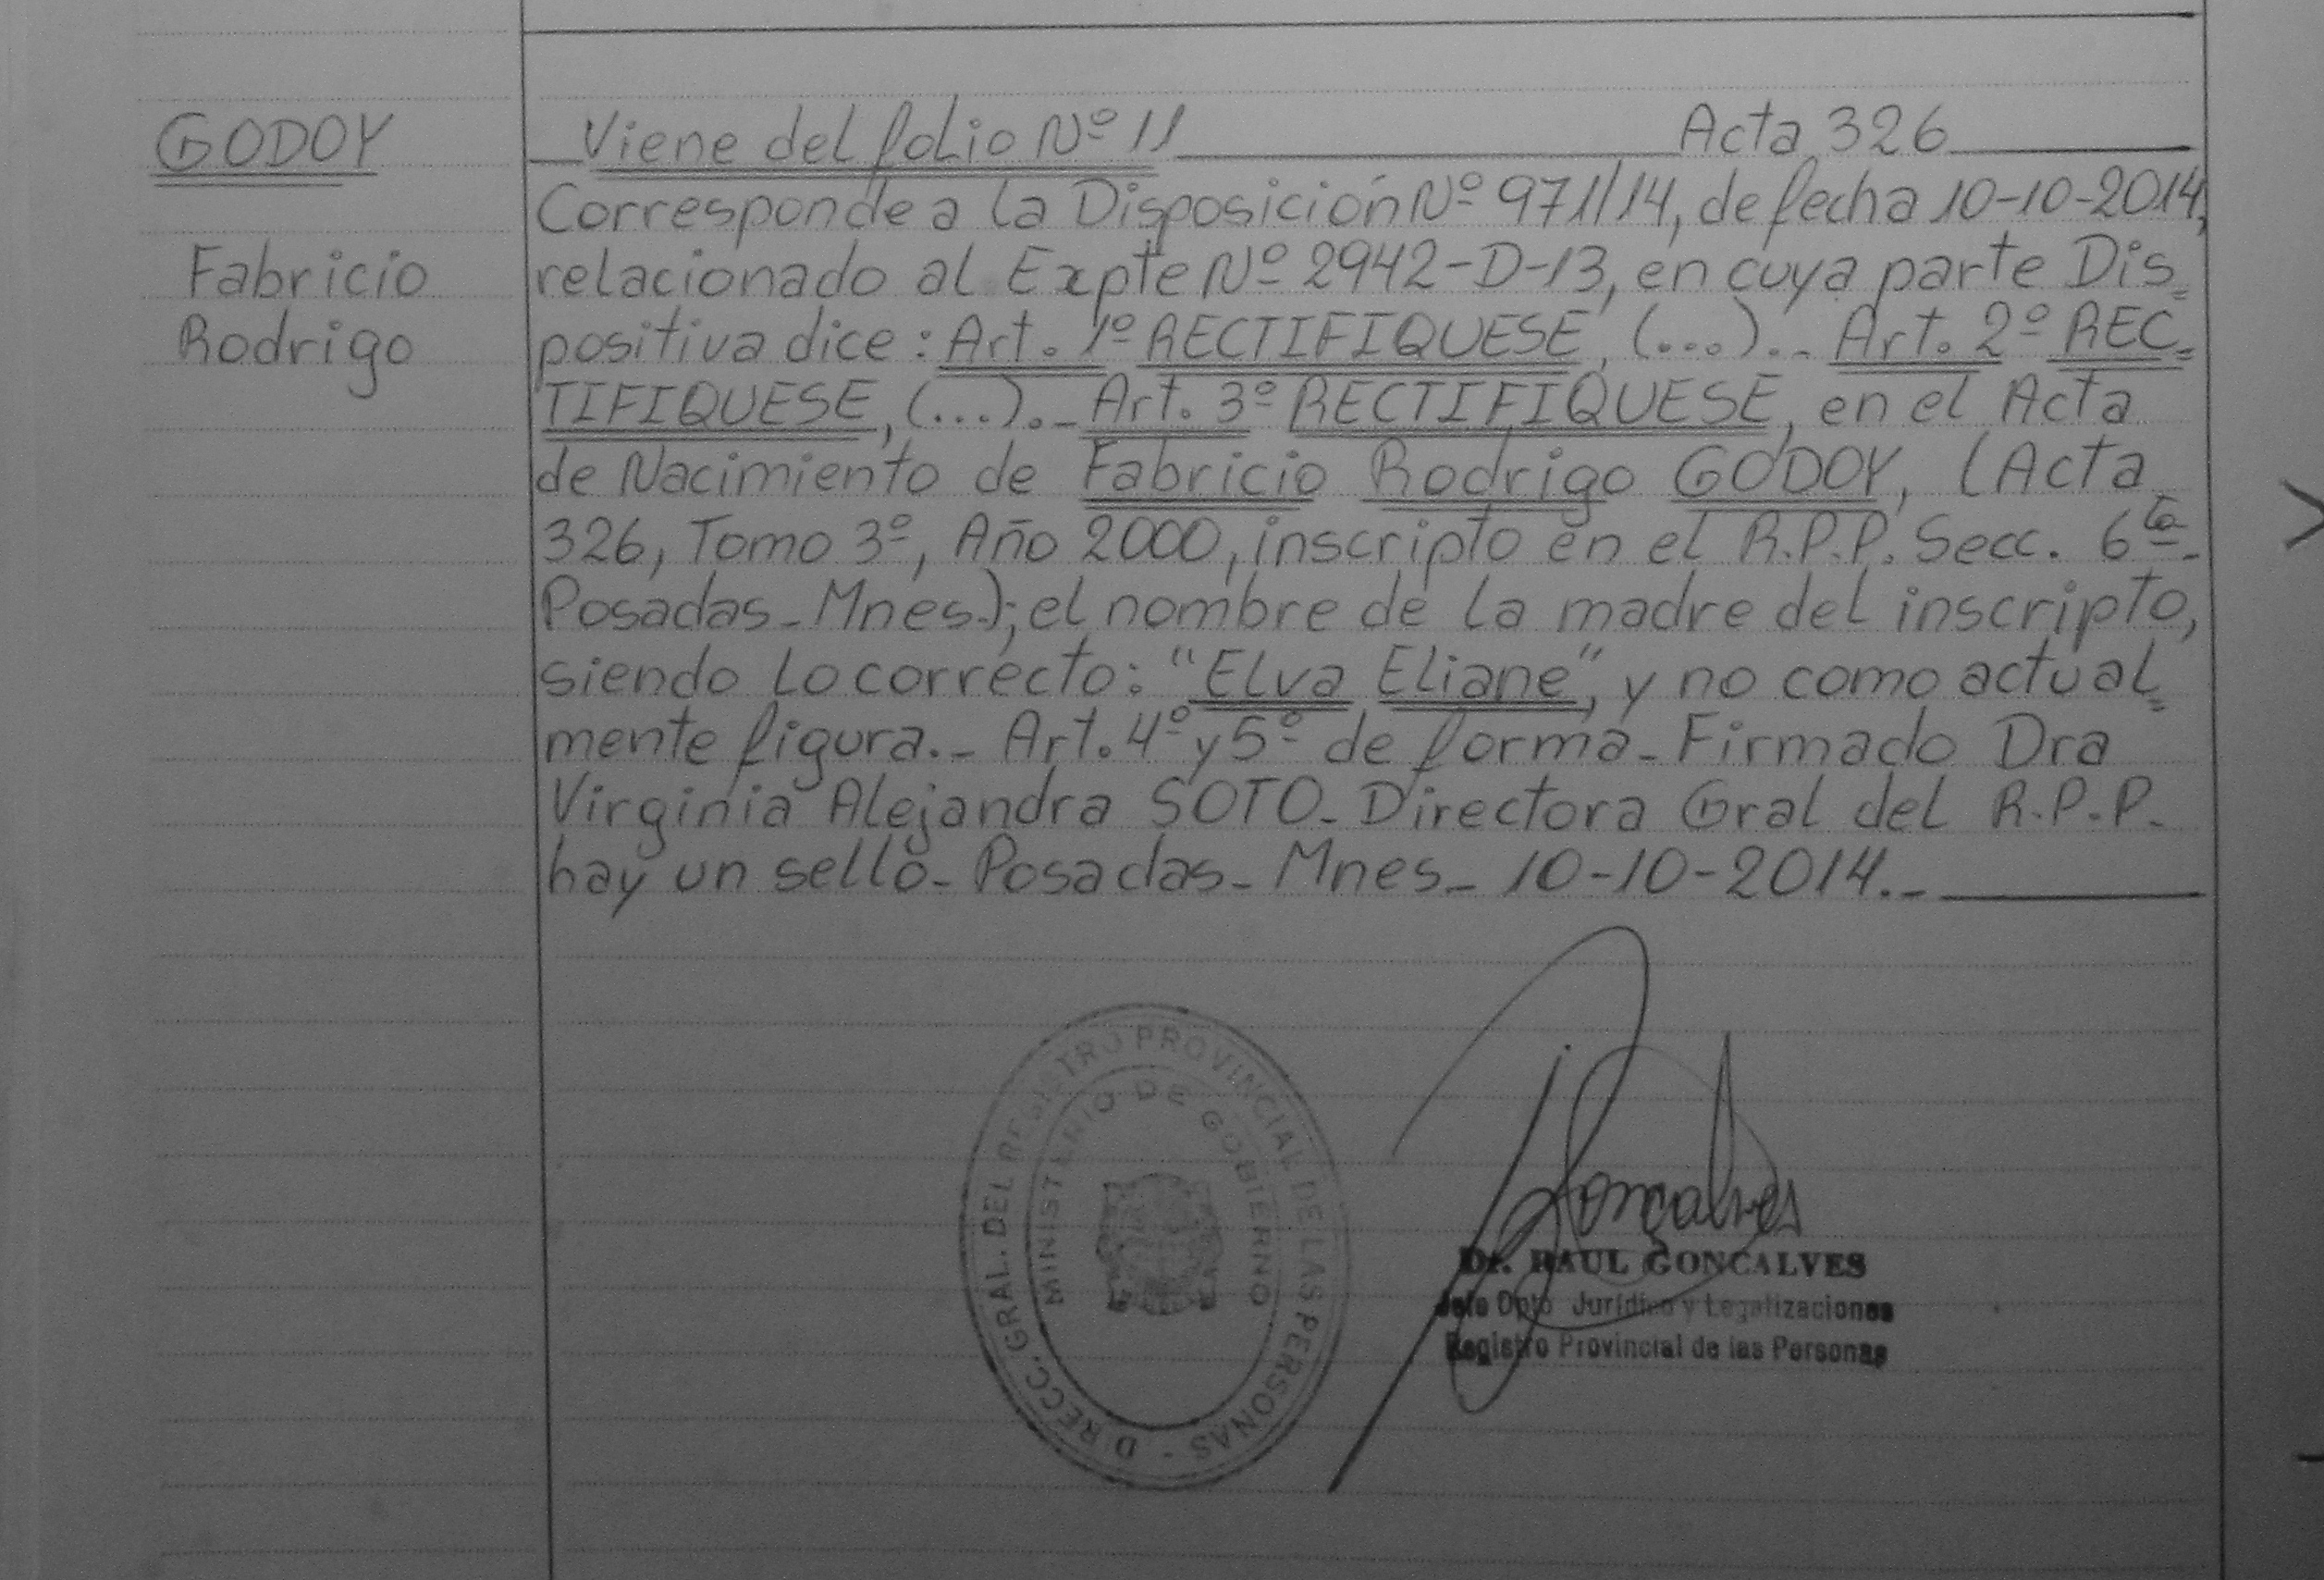 GODOY
Fabricio
Rodrigo
Viene del folio Nº 11 Acta 326
Corresponde a la Disposición Nº 971/14, de fecha 10-10-2014,
relacionado al Expte Nº 2942-D-13, en cuya parte Dis=
positiva dice: Art. 1º RECTIFIQUESE, (...)._ Art. 2º REC=
TIFIQUESE, (...)._ Art. 3º RECTIFIQUESE, en el Acta
de Nacimiento de Fabricio Rodrigo GODOY, (Acta
326, Tomo 3º, Año 2000, inscripto en el R.P.P. Secc. 6ta_
Posadas_Mnes.); el nombre de la madre del inscripto,
siendo lo correcto: "Elva Eliane", y no como actual=
mente figura._ Art. 4º y 5º de forma_ Firmado Dra
Virginia Alejandra SOTO_ Directora Gral del R.P.P._
hay un sello_ Posadas_ Mnes_ 10-10-2014._
DIRECC. GRAL. DEL REGISTRO PROVINCIAL DE LAS PERSONAS -
MINISTERIO DE GOBIERNO
Gonçalves
Dr. RAUL GONCALVES
Jefe Dpto Jurídico y Legalizaciones
Registro Provincial de las Personas